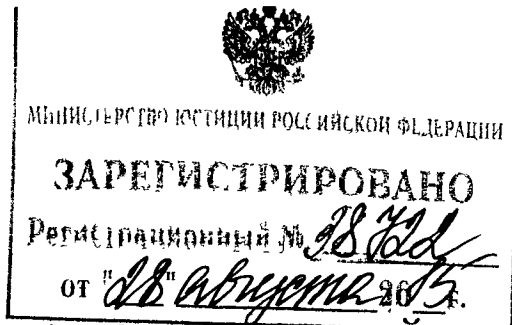 МИНИСТЕРСТВО ЮСТИЦИИ РОССИЙСКОЙ ФЕДЕРАЦИИ
ЗАРЕГИСТРИРОВАНО
Регистрационный № 38722
от "28" августа 2015 г.